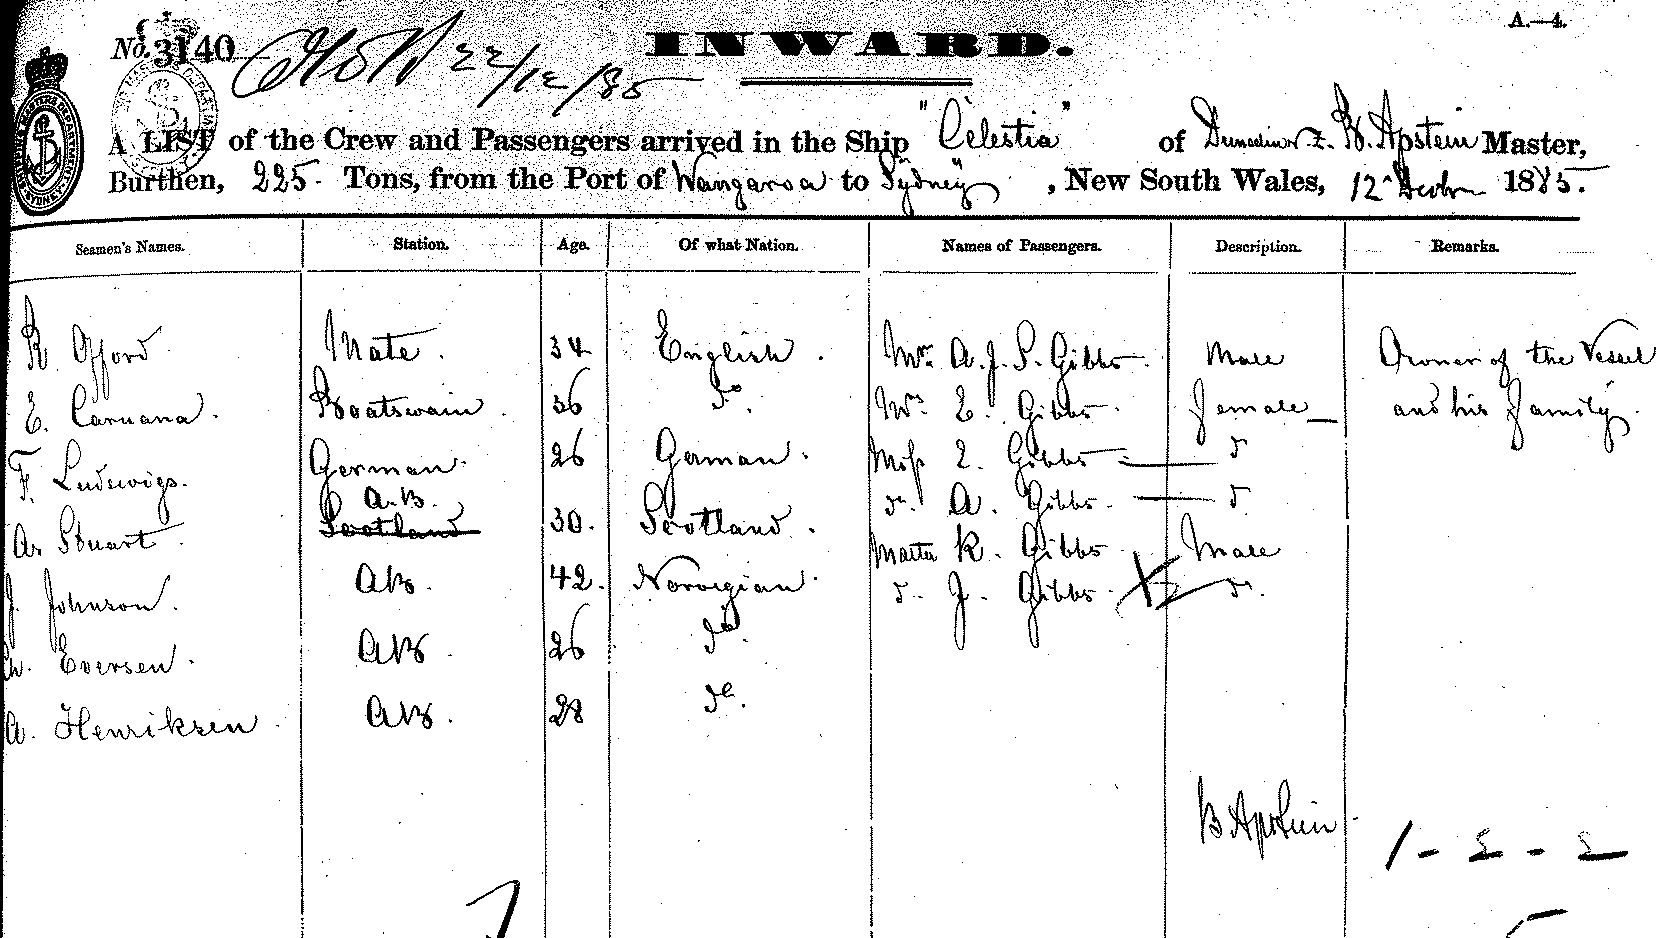 A.—4.
No. 3140 22/12/85 INWARD.
A LIST of the Crew and Passengers arrived in the Ship "Celestia" of Dunedin N.Z. B. Apstein Master,
Burthen, 225 Tons, from the Port of Wangaroa to Sydney, New South Wales, 12th Decbr 1885.
Seamen's Names. Station. Age. Of what Nation. Names of Passengers. Description. Remarks.
R Offord Mate. 34 English. Mr. A. J. S. Gibbs Male Owner of the Vessel
E. Caruana. Boatswain. 36 Do. Mrs. E. Gibbs. Female and his Family.
F. Ludewigs. German. 26 German. Miss E. Gibbs do
A. B.
Ar Stuart Scotland 30. Scotland. do. A. Gibbs. do
Master R. Gibbs Male
J. Johnson. AB. 42. Norvegian. do. J. Gibbs. do.
Ch. Eversen. AB. 26 do.
A. Henriksen AB. 28 do.
B Apstein
1 - 2 - 2
7
5